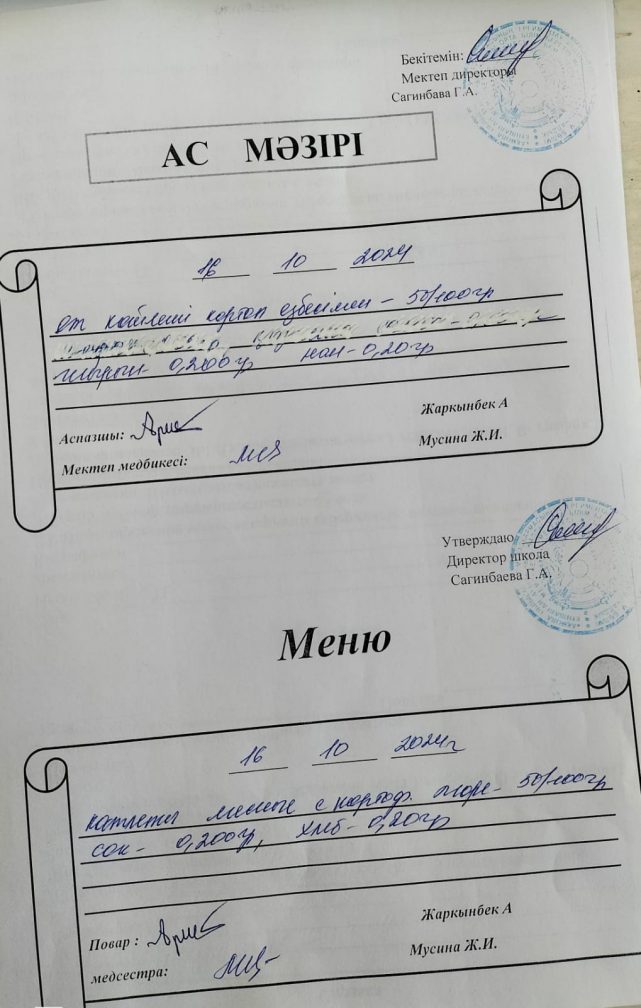 Бекітемін:
Мектеп директоры
Сагинбава Г.А.
АС МӘЗІРІ
16 10 2024
Ет котлеті картоп езбесімен - 50/100гр
шырын- 0,200гр нан- 0,20гр
Жаркынбек А
Аспазшы:
Мусина Ж.И.
Мектеп медбикесі:
Утверждаю
Директор школа
Сагинбаева Г.А.
Меню
16 10 2024г
котлеты мясные с картоф. пюре- 50/100гр
сок- 0,200гр, хлеб- 0,20гр
Жаркынбек А
Повар :
Мусина Ж.И.
медсестра: